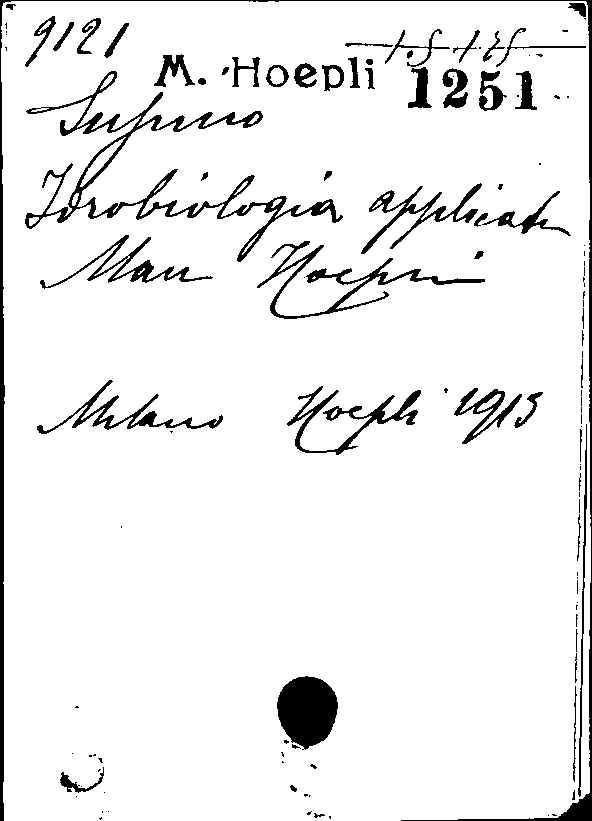 9121
1.5.175
M. Hoepli 1251
Supino
Idrobiologia applicata
Man Hoepli
Milano Hoepli 1913